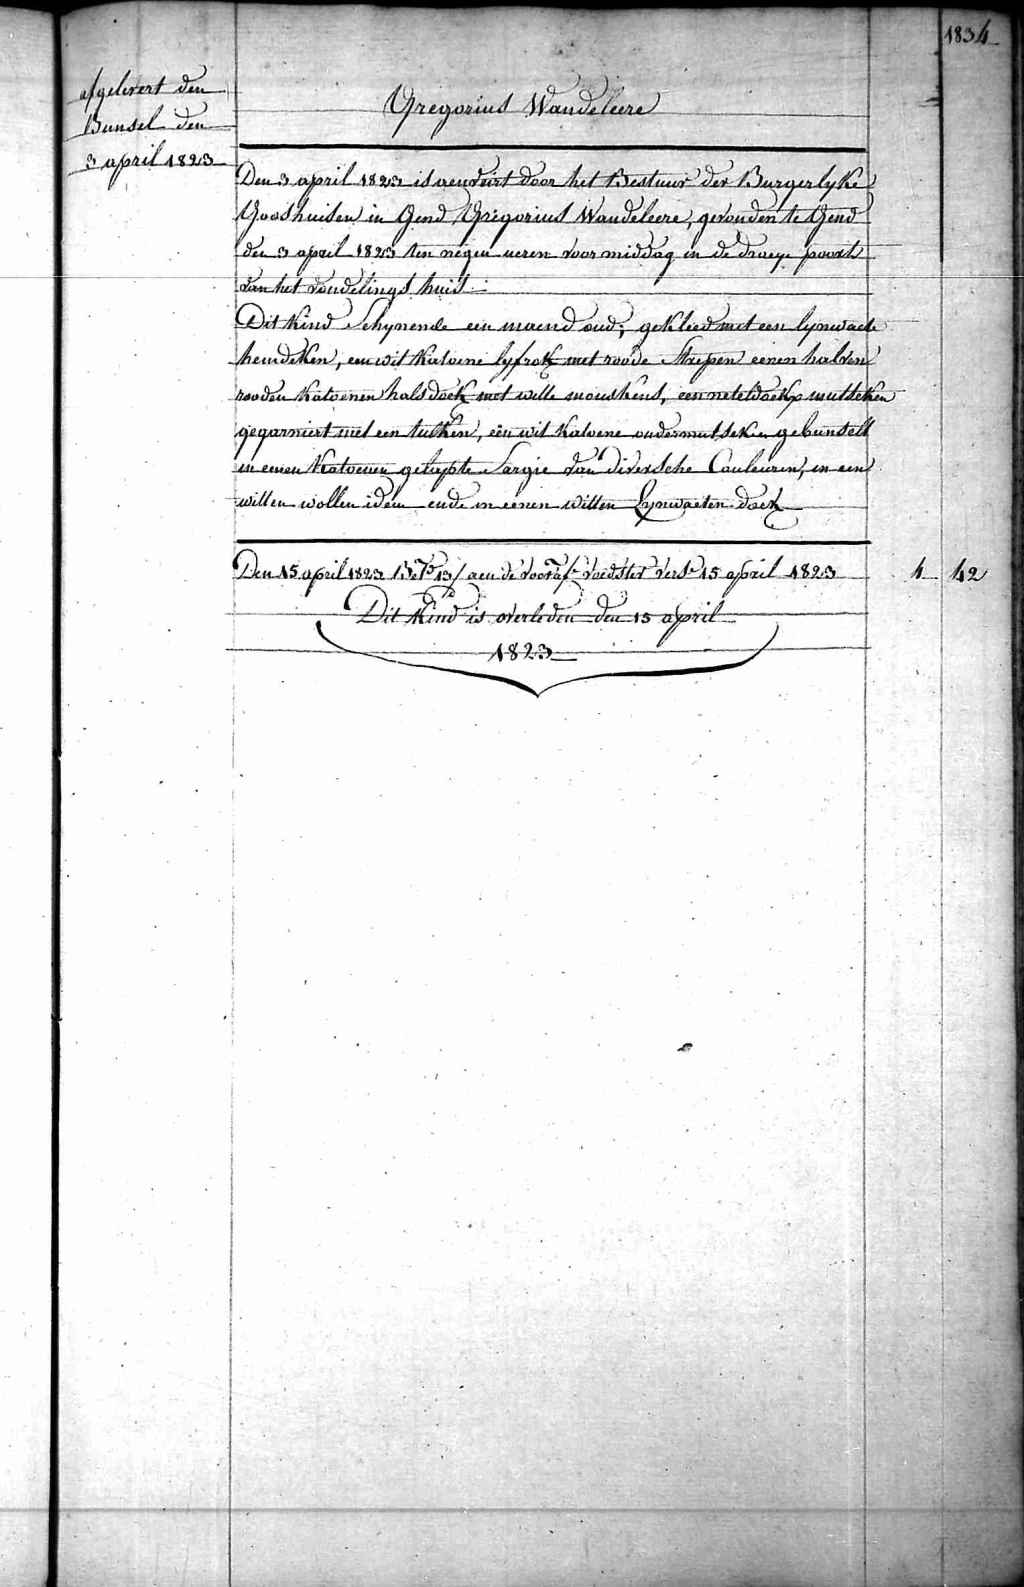 1834
afgelevert den
Bunsel den
3 april 1823
Gregorius Wandeleere
Den 3 april 1823 is aenveirt door het Bestuur der Burgerlyke
Godshuisen in Gend, Gregorius Wandeleere, gevonden te Gend
den 3 april 1823 ten negen ueren voormiddag in de draeye poort
van het vondelings huis
Dit kind schynende een maend oud, gekleed met een lynwaete
hemdeken, een wit katoene lyfrok met roode streepen eenen halven
rooden katoenen halsdoek met witte mouskens, een neteldoekx mutseken
gegarniert met een tulken, een wit katoene ondermutseken gebunselt
in eenen katoenen gelapte sargie van diversche Couleuren, in een
witten wollen idem ende in eenen witten Lynwaeten doek
Den 15 april 1823 aen de vooraf voedster 15 april 1823 4 42
Dit kind is overleden den 15 april
1823